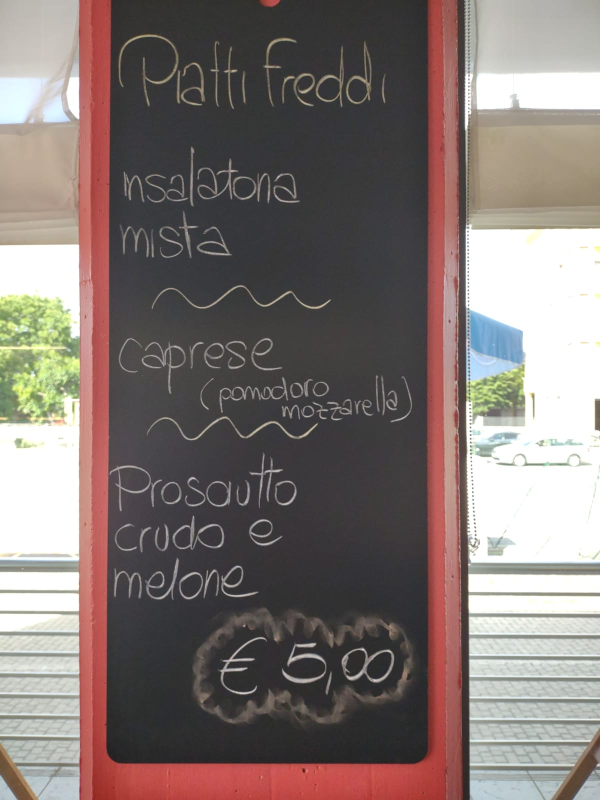 Piatti Freddi
Insalatona
mista
caprese
(pomodoro
mozzarella)
Prosciutto
crudo e
melone
€ 5,00